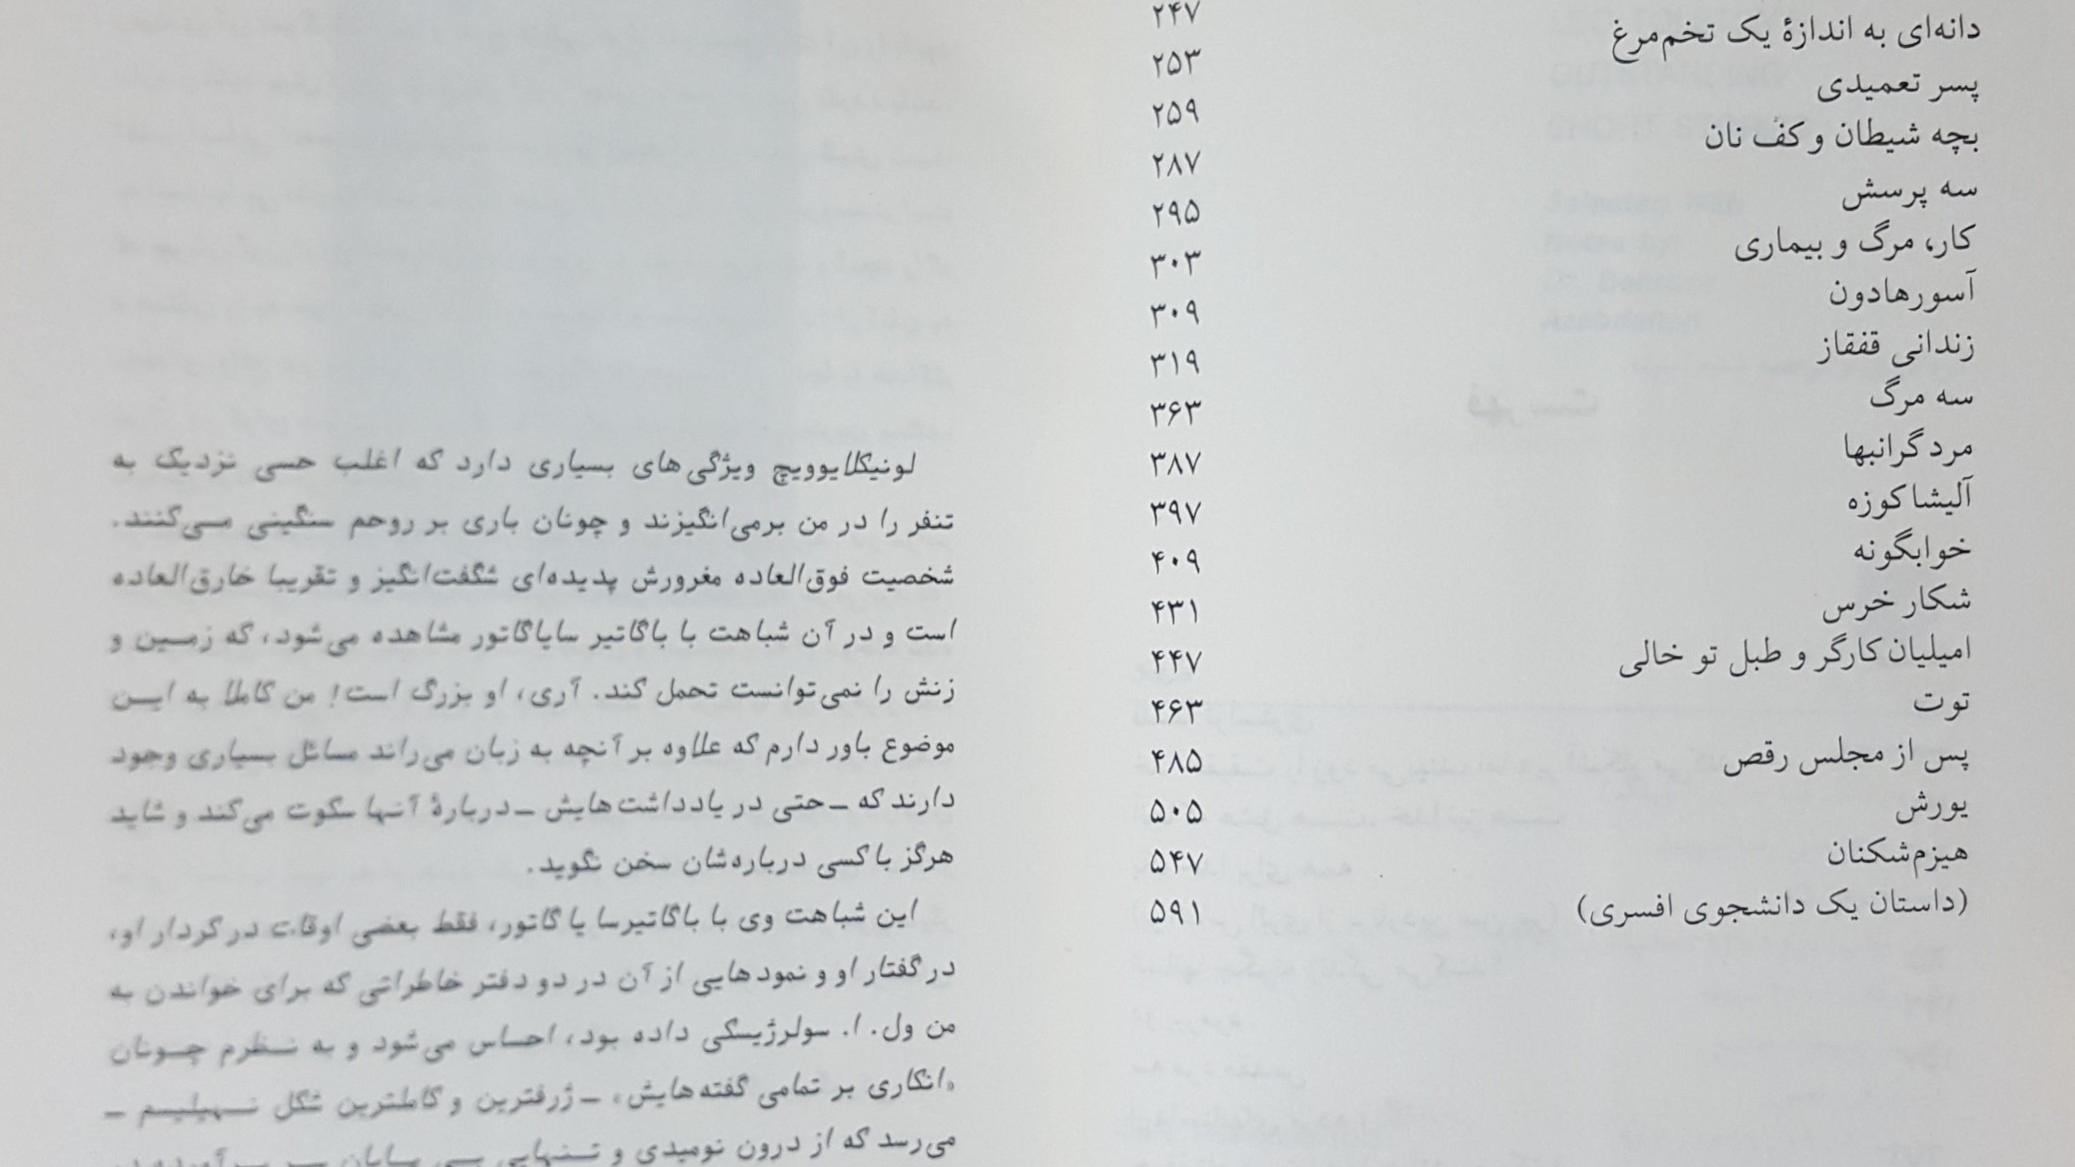 دانه‌ای به اندازهٔ یک تخم‌مرغ ۲۴۷
پسر تعمیدی ۲۵۳
بچه شیطان و کف نان ۲۵۹
سه پرسش ۲۸۷
کار، مرگ و بیماری ۲۹۵
آسورهادون ۳۰۳
زندانی قفقاز ۳۰۹
سه مرگ ۳۱۹
مرد گرانبها ۳۶۳
آلیشا کوزه ۳۸۷
خوابگونه ۳۹۷
شکار خرس ۴۰۹
امیلیان کارگر و طبل تو خالی ۴۳۱
توت ۴۴۷
پس از مجلس رقص ۴۶۳
یورش ۴۸۵
هیزم‌شکنان ۵۰۵
(داستان یک دانشجوی افسری) ۵۴۷
۵۹۱
لونیکلایوویچ ویژگی‌های بسیاری دارد که اغلب حسی نزدیک به
تنفر را در من برمی‌انگیزند و چونان باری بر روحم سنگینی می‌کنند.
شخصیت فوق‌العاده مغرورش پدیده‌ای شگفت‌انگیز و تقریبا خارق‌العاده
است و در آن شباهت با باگاتیر سایاگاتور مشاهده می‌شود، که زمین و
زنش را نمی‌توانست تحمل کند. آری، او بزرگ است! من کاملا به این
موضوع باور دارم که علاوه بر آنچه به زبان می‌راند مسائل بسیاری وجود
دارند که ـ حتی در یادداشت‌هایش ـ دربارهٔ آنها سکوت می‌کند و شاید
هرگز با کسی درباره‌شان سخن نگوید.
این شباهت وی با باگاتیرسا یاگاتور، فقط بعضی اوقات در کردار او،
در گفتار او و نمودهایی از آن در دو دفتر خاطراتی که برای خواندن به
من ول. ا. سولرژیسکی داده بود، احساس می‌شود و به نظرم چونان
«انکاری بر تمامی گفته‌هایش» ـ ژرفترین و کاملترین شکل نهیلیسم ـ
می‌رسد که از درون نومیدی و تنهایی بی پایان